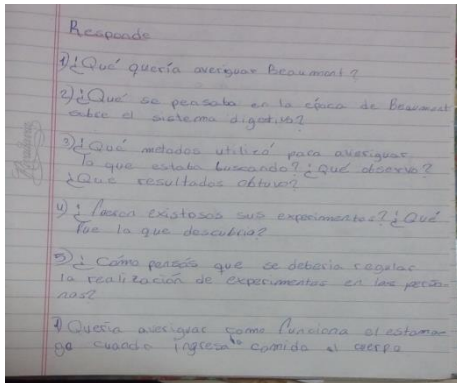 Responde
1) ¿Qué quería averiguar Beaumont?
2) ¿Qué se pensaba en la época de Beaumont
sobre el sistema digestivo?
3) ¿Qué metodos utilizó para averiguar
lo que estaba buscando? ¿Qué observo?
¿Que resultados obtuvo?
4) ¿Fueron existosos sus experimentos? ¿Qué
fue lo que descubrio?
5) ¿Cómo pensás que se deberia regular
la realización de experimentos en las perso-
nas?
1) Quería averiguar como funciona el estoma-
go cuando ingresa comida al cuerpo